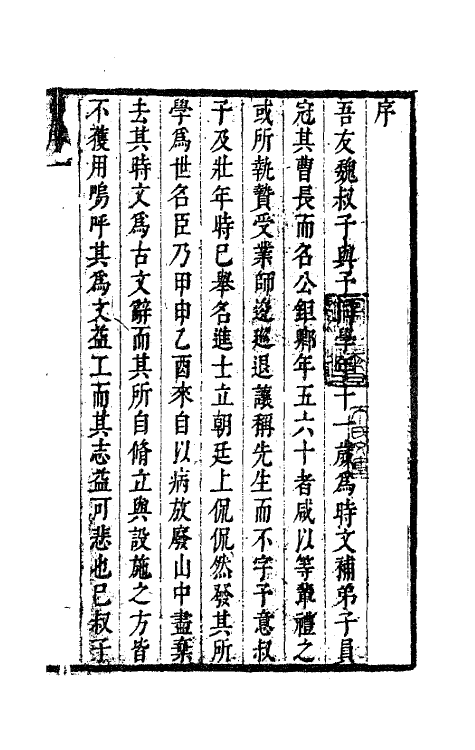 序
吾友魏叔子與予同學年十一歲為時文補弟子員
冠其曹長而名公鉅卿年五六十者咸以等輩禮之
或所執贄受業師逡巡退讓稱先生而不字予意叔
子及壯年時已舉名進士立朝廷上侃侃然發其所
學爲世名臣乃甲申乙酉來自以病放廢山中盡棄
去其時文爲古文辭而其所自脩立與設施之方皆
不獲用嗚呼其爲文益工而其志益可悲也已叔子